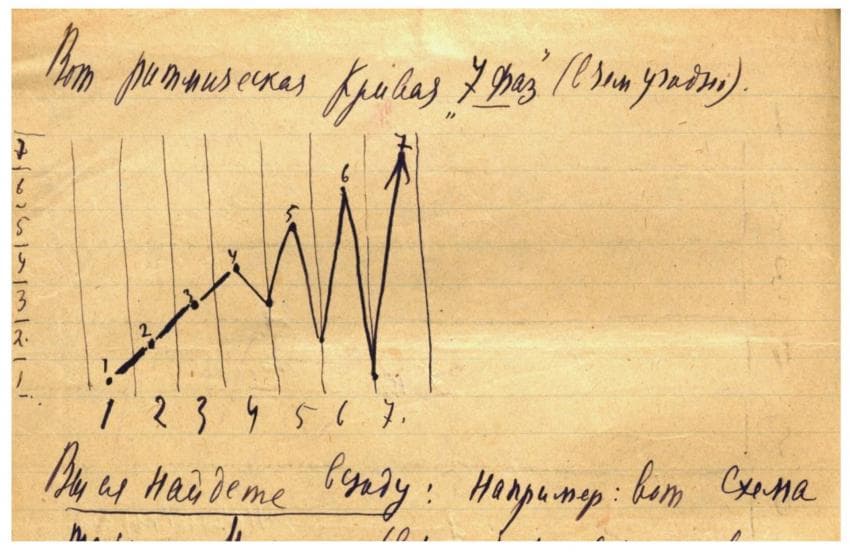 Вот ритмическая кривая „7 Фаз" (в чем угодно).
7
6
5
4
3
2
1
1 2 3 4 5 6 7
1 2 3 4 5 6 7.
Вы ея найдете всюду: Например: вот схема